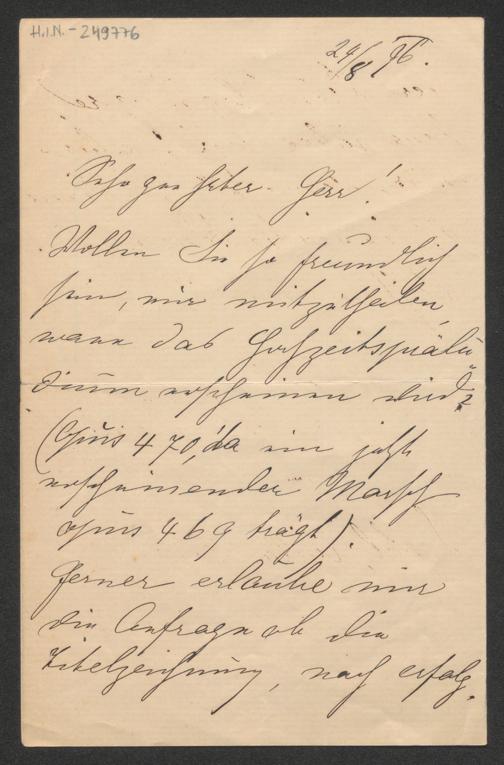 H.I.N.-249776
24/8 96.
Sehr geehrter Herr!
Wollen Sie so freundlich
sein, mir mitzutheilen
wann das Hochzeitsprälu
dium erscheinen wird?
(Opus 470, da ein jetzt
erscheinender Marsch
opus 469 trägt)
Ferner erlaube mir
die Anfrage ob die
Titelzeichnung, nach erfolg.